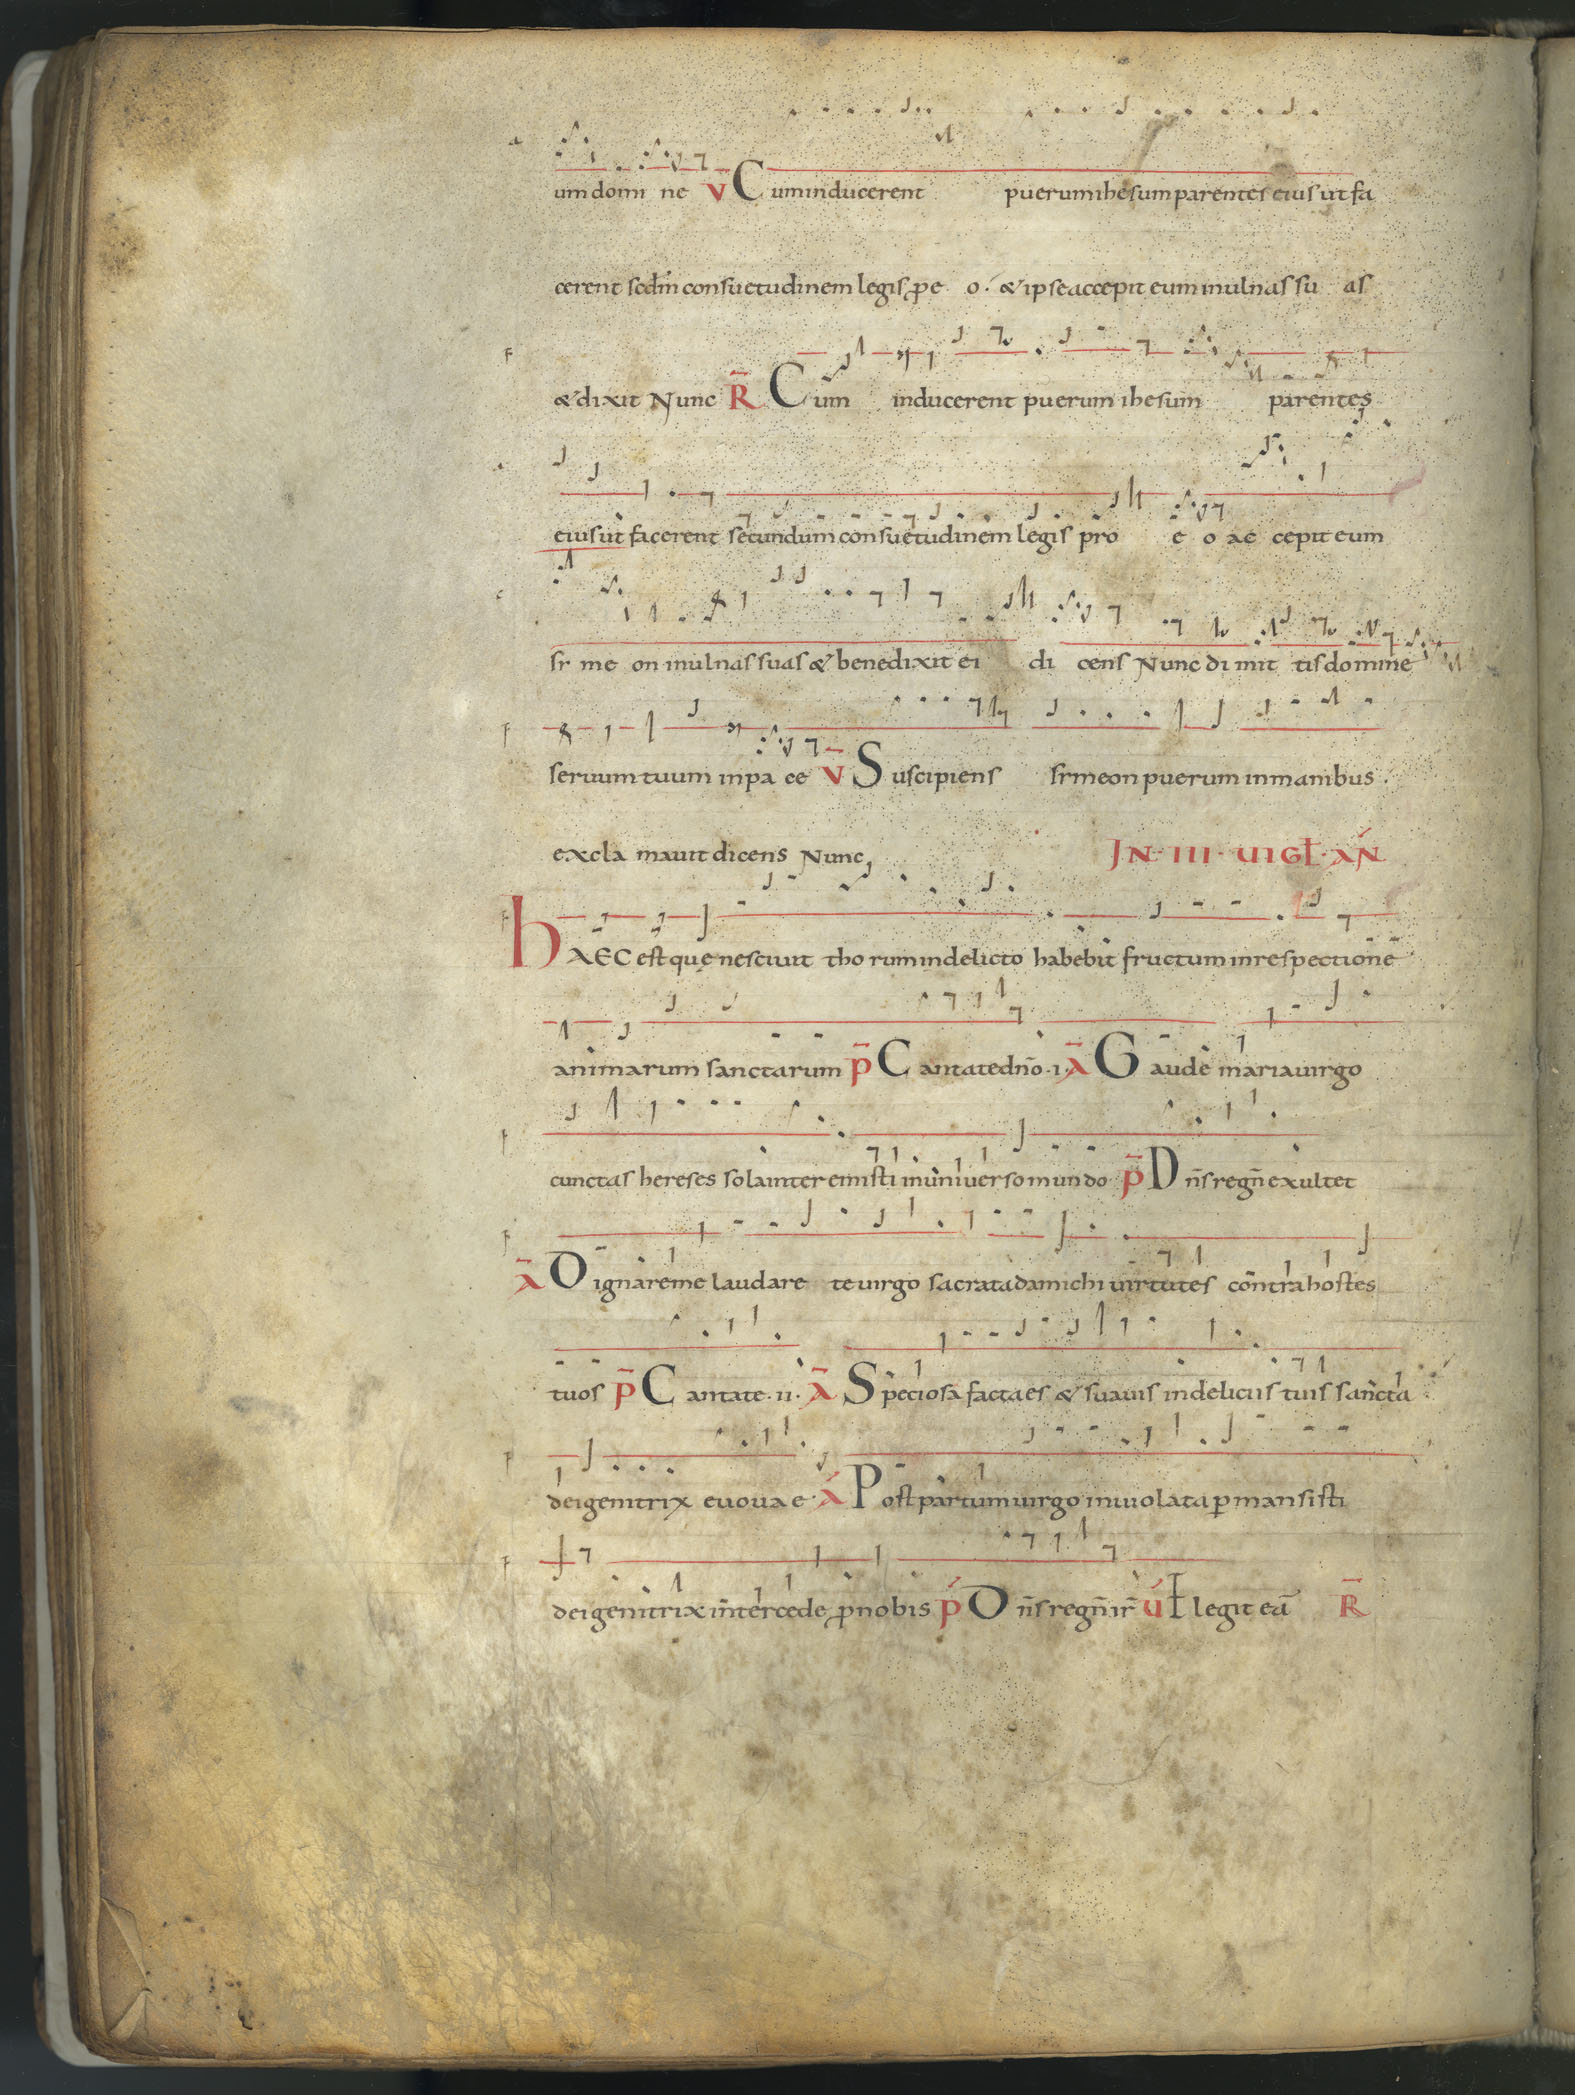 um domi ne V̄ Cum inducerent puerum ihesum parentes eius ut fa
cerent scdm̄ consuetudinem legis ꝓ e o. & ipse accepit eum in ulnas su as
& dixit Nunc R̄ Cum inducerent puerum ihesum parentes
eius ut facerent secundum consuetudinem legis pro e o ac cepit eum
si me on in ulnas suas & benedixit ei di cens Nunc di mit tis domine
seruum tuum in pa ce V̄ Suscipiens simeon puerum in manibus.
excla mauit dicens Nunc, IN · III · UIGƚ · AN̄
hAEC est quę nesciuit tho rum in delicto habebit fructum in respectione
animarum sanctarum P̄ Cantate dn̄o .i. Ā Gaude maria uirgo
cunctas hereses sola interemisti in uniuerso mundo P̄ Dn̄s regn̄ exultet
Ā Dignare me laudare te uirgo sacrata da michi uirtutes contra hostes
tuos P̄ Cantate .ii. Ā Speciosa facta es & suauis in deliciis tuis sancta
dei genitrix euouae Ā Post partum uirgo inuiolata ꝑmansisti
dei genitrix intercede ꝓ nobis P̄ Dn̄s regn̄ ir̄ U̅ Elegit eā R̄